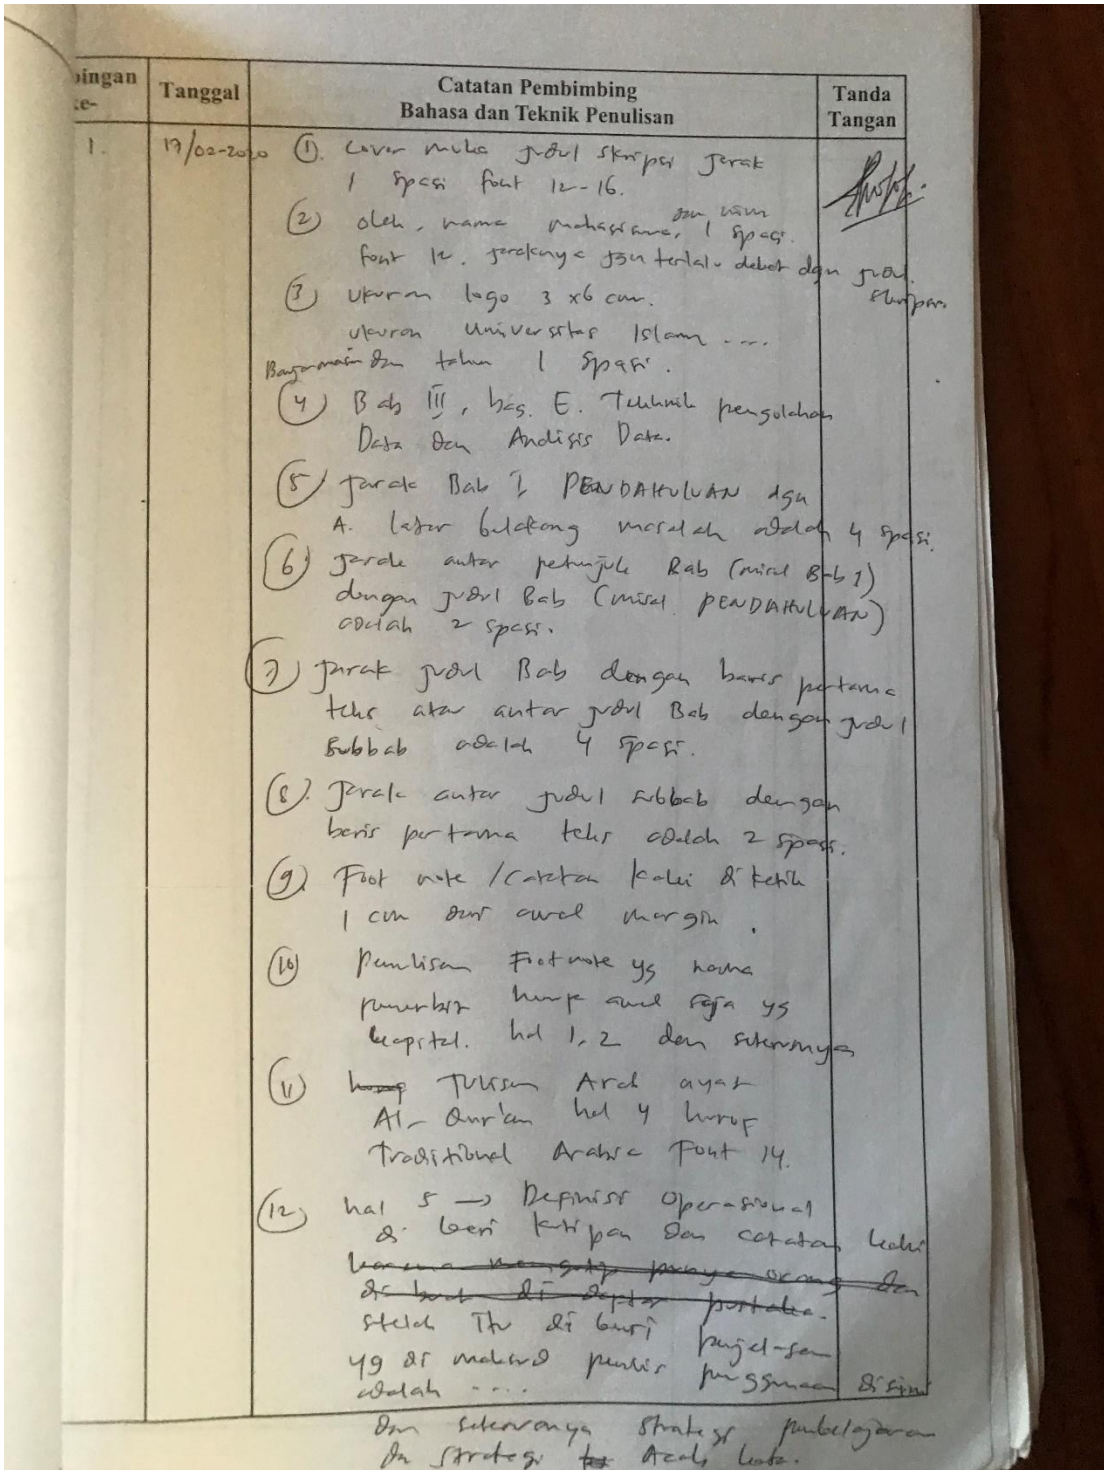 bingan
ke-
Tanggal
Catatan Pembimbing
Bahasa dan Teknik Penulisan
Tanda
Tangan
1.
17/02-2020
① Cover muka judul skripsi jarak
1 spasi font 12-16.
② oleh, nama mahasiswa, dan nim 1 spasi.
font 12. jaraknya jgn terlalu dekat dgn judul
skripsi.
③ ukuran logo 3 x6 cm.
ukuran Universitas Islam ....
Banjarmasin dan tahun 1 spasi.
④ Bab III, bag. E. Tekhnik pengolahan
Data dan Analisis Data.
⑤ jarak Bab I PENDAHULUAN dgn
A. latar belakang masalah adalah 4 spasi.
⑥ jarak antar petunjuk Bab (misal Bab 1)
dengan judul Bab (misal PENDAHULUAN)
adalah 2 spasi.
⑦ jarak judul Bab dengan baris pertama
teks atau antar judul Bab dengan judul
subbab adalah 4 spasi.
⑧. jarak antar judul subbab dengan
baris pertama teks adalah 2 spasi.
⑨ Foot note /catatan kaki diketik
1 cm dari awal margin.
⑩ penulisan Footnote yg nama
penerbit huruf awal saja yg
kapital. hal 1, 2 dan seterusnya
⑪ Tulisan Arab ayat
Al-Qur'an hal 4 huruf
Traditional Arabic Font 14.
⑫ hal 5 → Definisi Operasional
di beri kutipan dan catatan kaki
karena mengutip punya orang dan
di buat di daptar pustaka.
stelah itu di beri penjelasan
yg di maksud penulis penggunaan disini
adalah ....
dan seterusnya strategi pembelajaran
dan strategi Acak kata.